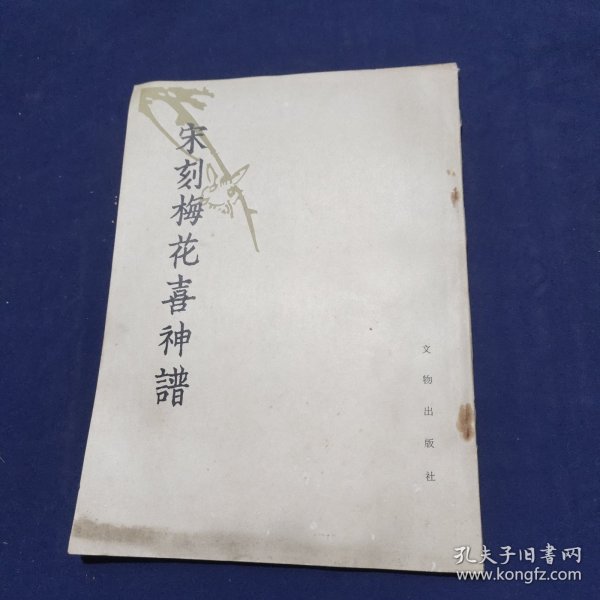 宋刻梅花喜神譜
文物出版社
孔夫子旧書网
www.kongfz.com